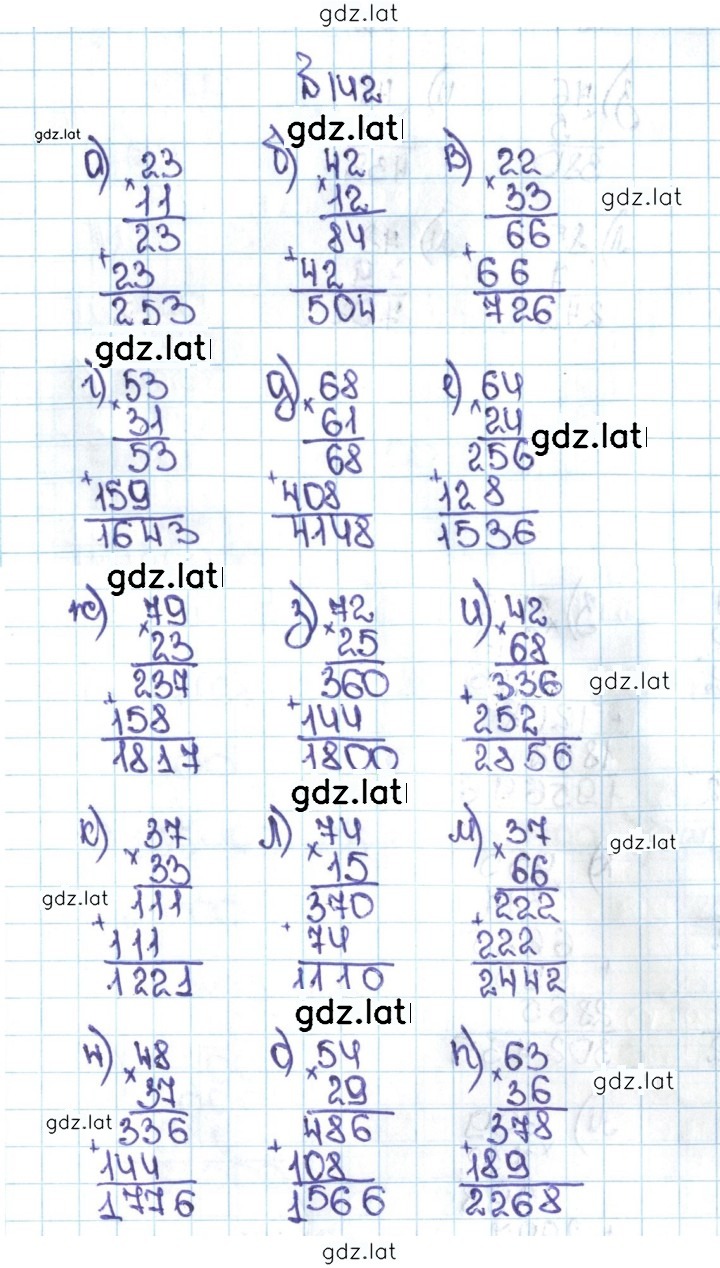 gdz.lat
№142
gdz.lat
gdz.lat
а) 23 б) 42 в) 22
× 11 × 12 × 33
gdz.lat
23 84 66
+ 23 + 42 + 66
253 504 726
gdz.lat
г) 53 д) 68 е) 64
× 31 × 61 × 24
gdz.lat
53 68 256
+ 159 + 408 + 128
1643 4148 1536
gdz.lat
ж) 79 з) 72 и) 42
× 23 × 25 × 68
237 360 336
gdz.lat
+ 158 + 144 + 252
1817 1800 2856
gdz.lat
к) 37 л) 74 м) 37
gdz.lat
× 33 × 15 × 66
gdz.lat
111 370 222
+ 111 + 74 + 222
1221 1110 2442
gdz.lat
н) 48 о) 54 п) 63
× 37 × 29 × 36
gdz.lat
gdz.lat
336 486 378
+ 144 + 108 + 189
1776 1566 2268
gdz.lat